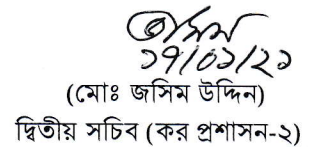 ১৭/০১/২১
(মোঃ জসিম উদ্দিন)
দ্বিতীয় সচিব (কর প্রশাসন-২)